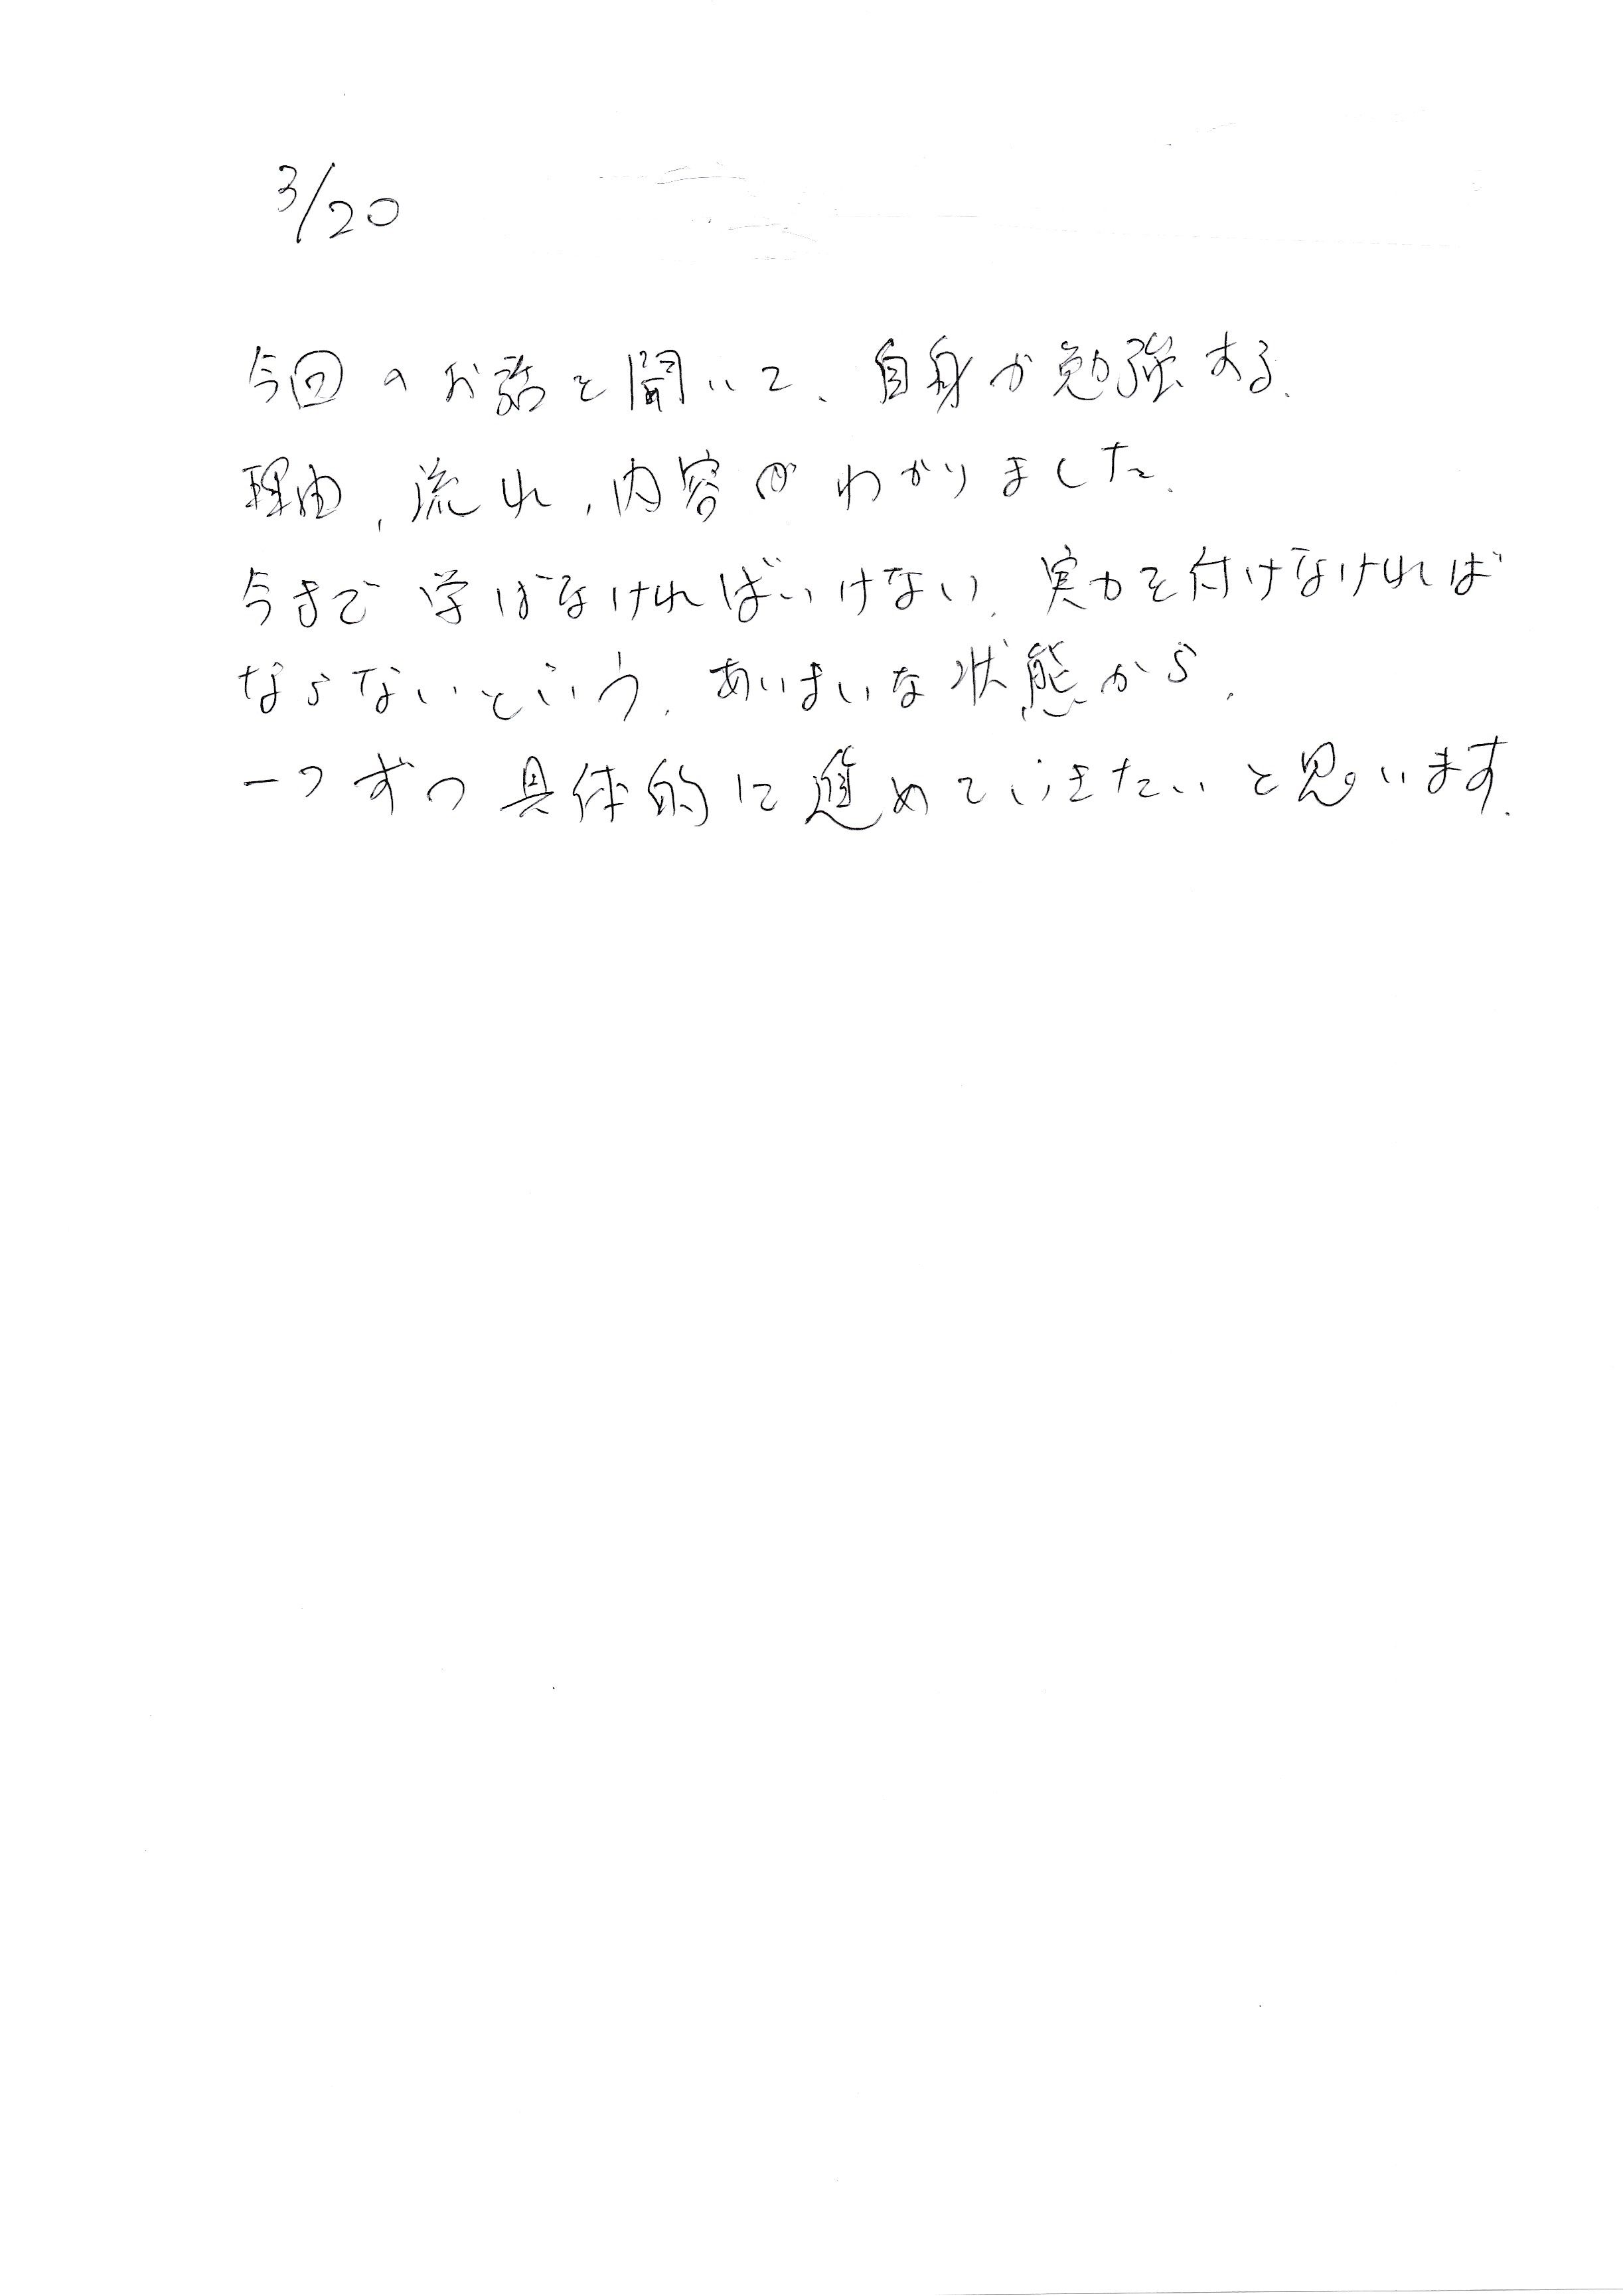 3/20
今回のお話を聞いて、自身が勉強する、
理由、流れ、内容がわかりました。
今まで学ばなければいけない、実力を付けなければ
ならないという、あいまいな状態から、
一つずつ具体的に進めていきたいと思います。